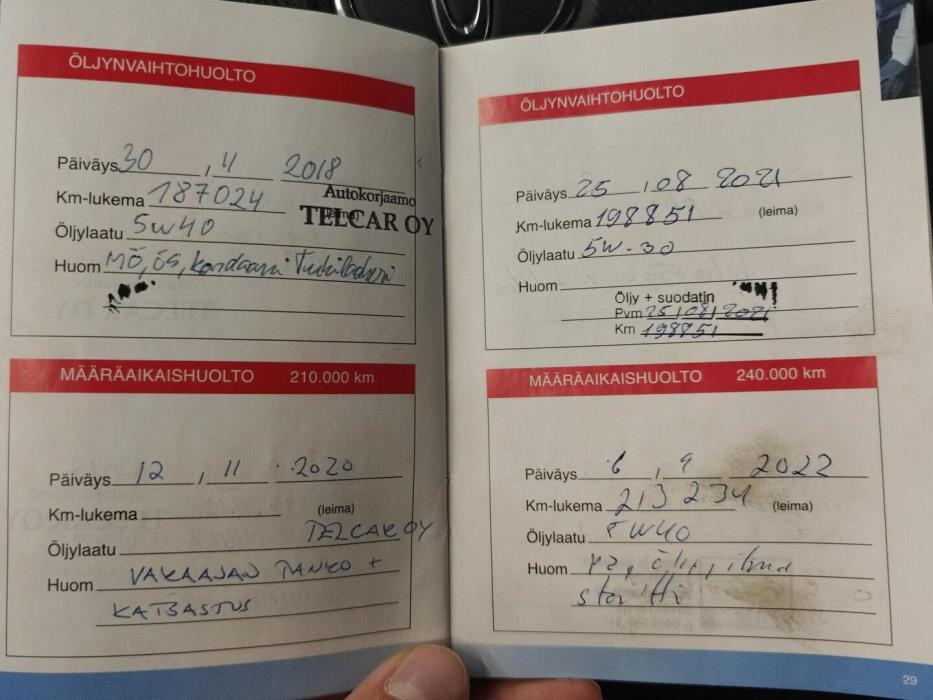 ÖLJYNVAIHTOHUOLTO
Päiväys 30 , 11 2018
Km-lukema 187024
Autokorjaamo
TELCAR OY
Öljylaatu 5W40
Huom MÖ, ÖS,
MÄÄRÄAIKAISHUOLTO 210.000 km
Päiväys 12 , 11 . 2020
Km-lukema (leima)
TELCAR OY
Öljylaatu
Huom VAKAAJAN TANKO +
KATSASTUS
ÖLJYNVAIHTOHUOLTO
Päiväys 25 , 08 2021
Km-lukema 198851 (leima)
Öljylaatu 5W-30
Huom
Öljy + suodatin
Pvm 25/08/2021
Km 198851
MÄÄRÄAIKAISHUOLTO 240.000 km
Päiväys 6 , 9 2022
Km-lukema 213234 (leima)
Öljylaatu 5W40
Huom öljy, ilma
startti
29